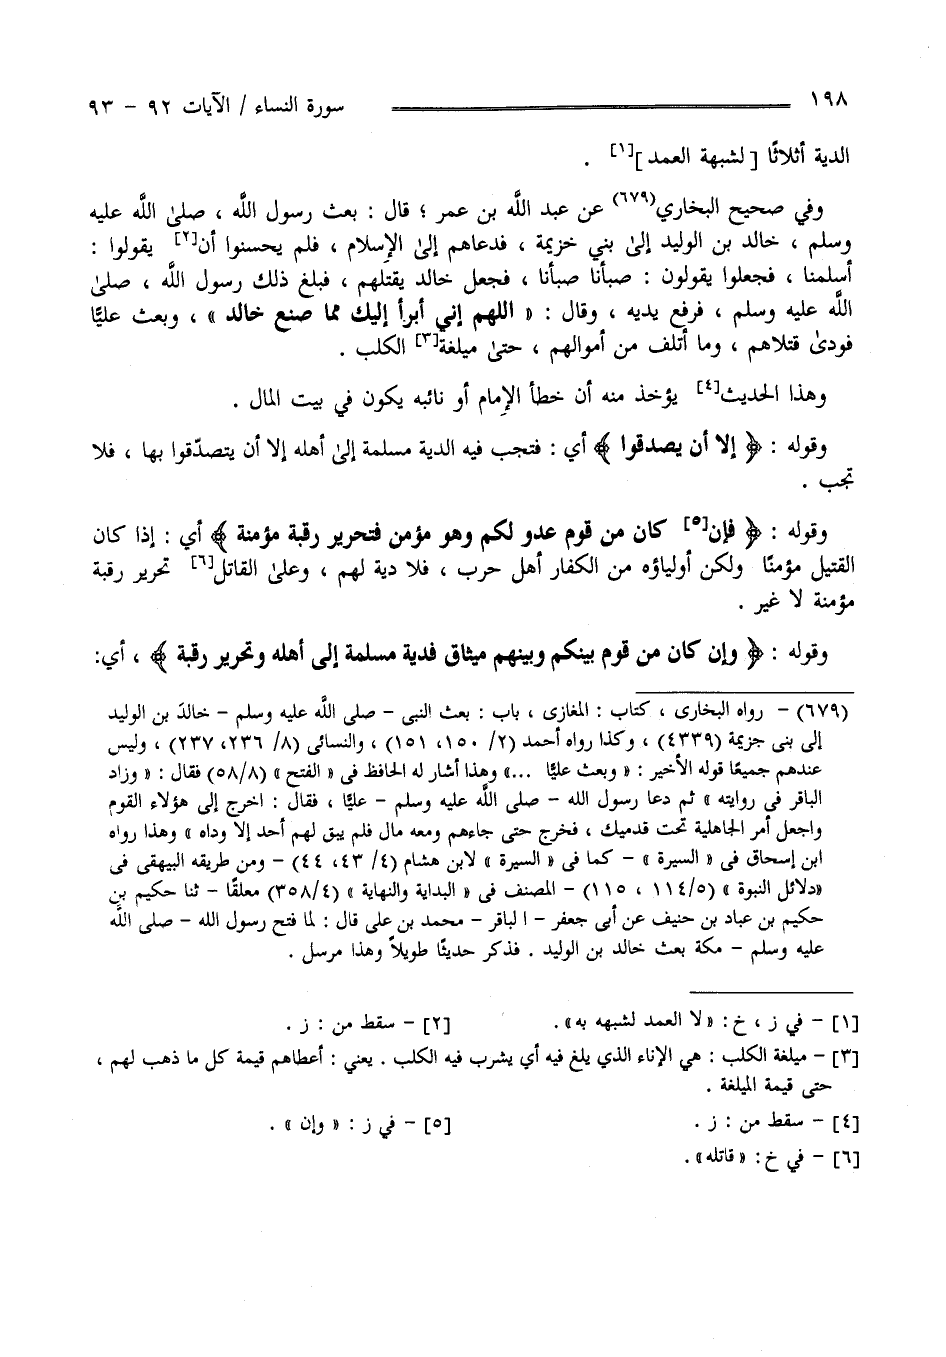 ١٩٨ سورة النساء / الآيات ٩٢ - ٩٣
الدية أثلاثًا [ لشبهة العمد ][١] .
وفي صحيح البخاري(٦٧٩) عن عبد اللَّه بن عمر ؛ قال : بعث رسول اللَّه ، صلىٰ اللَّه عليه
وسلم ، خالد بن الوليد إلىٰ بني خزيمة ، فدعاهم إلىٰ الإسلام ، فلم يحسنوا أن[٢] يقولوا :
أسلمنا ، فجعلوا يقولون : صبأنا صبأنا ، فجعل خالد يقتلهم ، فبلغ ذلك رسول اللَّه ، صلىٰ
اللَّه عليه وسلم ، فرفع يديه ، وقال : « اللهم إني أبرأ إليك مما صنع خالد » ، وبعث عليًّا
فودىٰ قتلاهم ، وما أتلف من أموالهم ، حتىٰ ميلغة[٣] الكلب .
وهذا الحديث[٤] يؤخذ منه أن خطأ الإمام أو نائبه يكون في بيت المال .
وقوله : ﴿ إلا أن يصدقوا ﴾ أي : فتجب فيه الدية مسلمة إلىٰ أهله إلا أن يتصدّقوا بها ، فلا
تجب .
وقوله : ﴿ فإن[٥] كان من قوم عدو لكم وهو مؤمن فتحرير رقبة مؤمنة ﴾ أي : إذا كان
القتيل مؤمنًا ولكن أولياؤه من الكفار أهل حرب ، فلا دية لهم ، وعلىٰ القاتل[٦] تحرير رقبة
مؤمنة لا غير .
وقوله : ﴿ وإن كان من قوم بينكم وبينهم ميثاق فدية مسلمة إلى أهله وتحرير رقبة ﴾ ، أي:
(٦٧٩) - رواه البخارى ، كتاب : المغازى ، باب : بعث النبى - صلى اللَّه عليه وسلم - خالدَ بن الوليد
إلى بنى جزيمة (٤٣٣٩) ، وكذا رواه أحمد (٢/ ١٥٠، ١٥١) ، والنسائى (٨/ ٢٣٦، ٢٣٧) ، وليس
عندهم جميعًا قوله الأخير : « وبعث عليًّا ...» وهذا أشار له الحافظ فى « الفتح » (٥٨/٨) فقال : « وزاد
الباقر فى روايته » ثم دعا رسول الله - صلى اللَّه عليه وسلم - عليًّا ، فقال : اخرج إلى هؤلاء القوم
واجعل أمر الجاهلية تحت قدميك ، فخرج حتى جاءهم ومعه مال فلم يبق لهم أحد إلا وداه » وهذا رواه
ابن إسحاق فى « السيرة » - كما فى « السيرة » لابن هشام (٤/ ٤٣، ٤٤) - ومن طريقه البيهقى فى
«دلائل النبوة » (١١٤/٥ ، ١١٥) - المصنف فى « البداية والنهاية » (٣٥٨/٤) معلقًا - ثنا حكيم بن
حكيم بن عباد بن حنيف عن أبى جعفر - ا لباقر - محمد بن على قال : لما فتح رسول الله - صلى اللَّه
عليه وسلم - مكة بعث خالد بن الوليد . فذكر حديثًا طويلاً وهذا مرسل .
[١] - في ز ، خ : «لا العمد لشبهه به». [٢] - سقط من : ز .
[٣] - ميلغة الكلب : هي الإناء الذي يلغ فيه أي يشرب فيه الكلب . يعني : أعطاهم قيمة كل ما ذهب لهم ،
حتى قيمة الميلغة .
[٤] - سقط من : ز . [٥] - في ز : « وإن » .
[٦] - في خ : « قاتله» .